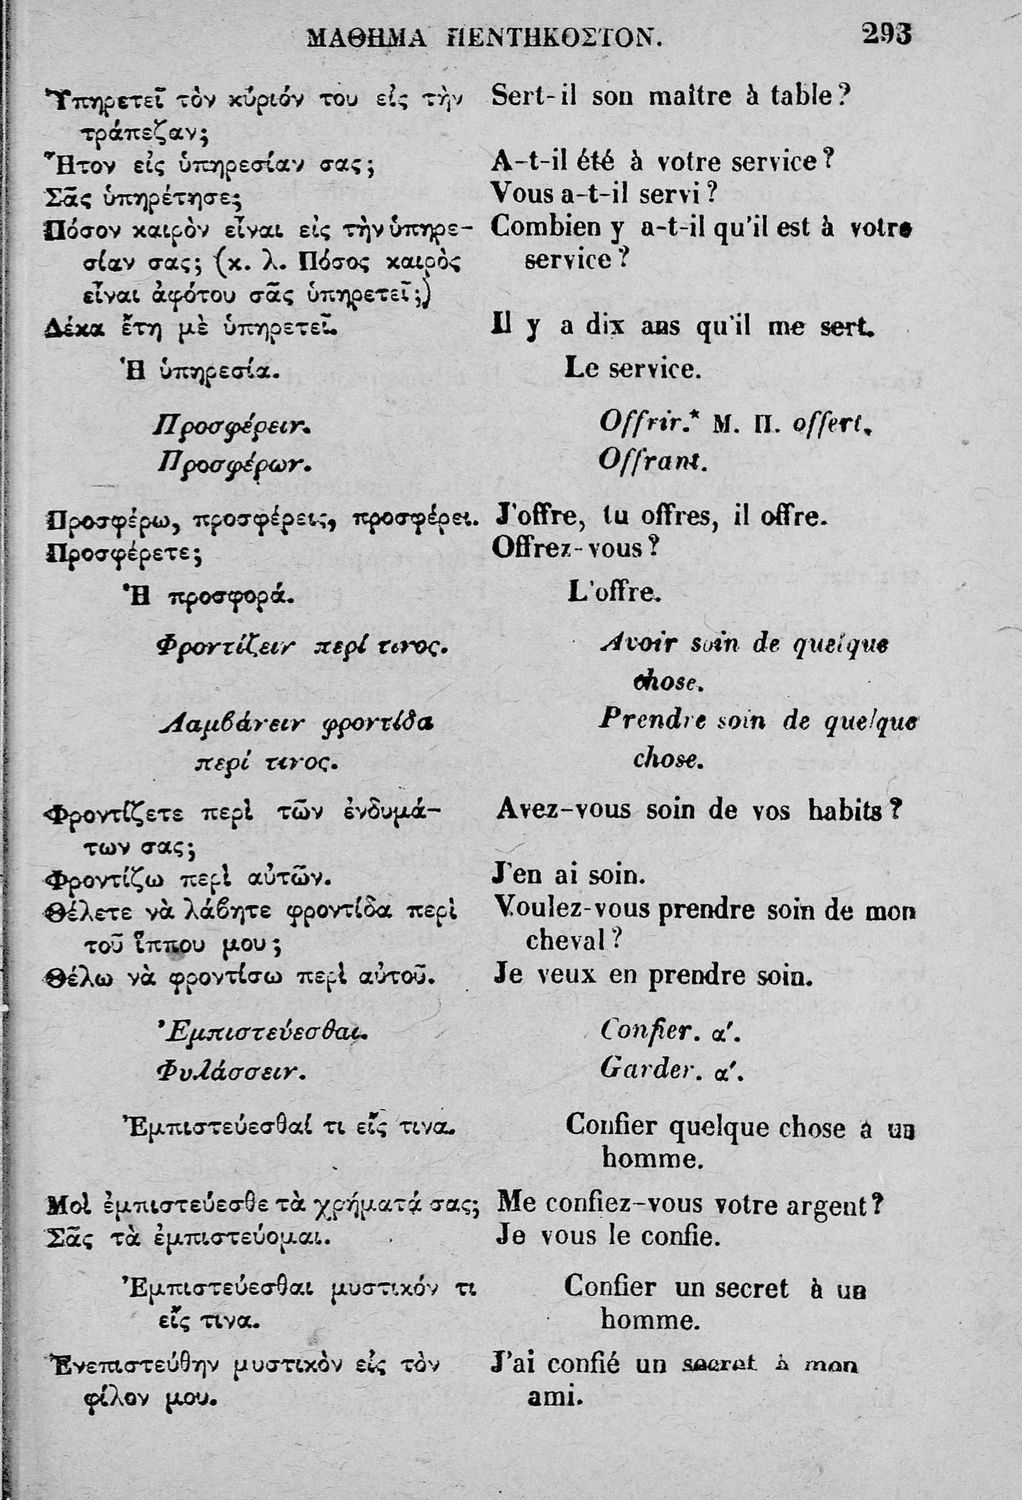 ΜΑΘΗΜΑ ΠΕΝΤΗΚΟΣΤΟΝ. 293
Ὑπηρετεῖ τὸν κύριόν του εἰς τὴν
τράπεζαν;
Sert-il son maître à table?
Ἦτον εἰς ὑπηρεσίαν σας;
A-t-il été à votre service?
Σᾶς ὑπηρέτησε;
Vous a-t-il servi?
Πόσον καιρὸν εἶναι εἰς τὴν ὑπηρε-
σίαν σας; (κ. λ. Πόσος καιρὸς
εἶναι ἀφότου σᾶς ὑπηρετεῖ;)
Combien y a-t-il qu'il est à votre
service?
Δέκα ἔτη μὲ ὑπηρετεῖ.
Il y a dix ans qu'il me sert.
Ἡ ὑπηρεσία.
Le service.
Προσφέρειν.
Offrir.* Μ. Π. offert.
Προσφέρων.
Offrant.
Προσφέρω, προσφέρεις, προσφέρει.
J'offre, tu offres, il offre.
Προσφέρετε;
Offrez-vous?
Ἡ προσφορά.
L'offre.
Φροντίζειν περί τινος.
Avoir soin de quelque
chose.
Λαμβάνειν φροντίδα
περί τινος.
Prendre soin de quelque
chose.
Φροντίζετε περὶ τῶν ἐνδυμά-
των σας;
Avez-vous soin de vos habits?
Φροντίζω περὶ αὐτῶν.
J'en ai soin.
Θέλετε νὰ λάβητε φροντίδα περὶ
τοῦ ἵππου μου;
Voulez-vous prendre soin de mon
cheval?
Θέλω νὰ φροντίσω περὶ αὐτοῦ.
Je veux en prendre soin.
Ἐμπιστεύεσθαι.
Confier. α'.
Φυλάσσειν.
Garder. α'.
Ἐμπιστεύεσθαί τι εἴς τινα.
Confier quelque chose à un
homme.
Μοὶ ἐμπιστεύεσθε τὰ χρήματά σας;
Me confiez-vous votre argent?
Σᾶς τὰ ἐμπιστεύομαι.
Je vous le confie.
Ἐμπιστεύεσθαι μυστικόν τι
εἴς τινα.
Confier un secret à un
homme.
Ἐνεπιστεύθην μυστικὸν εἰς τὸν
φίλον μου.
J'ai confié un secret à mon
ami.